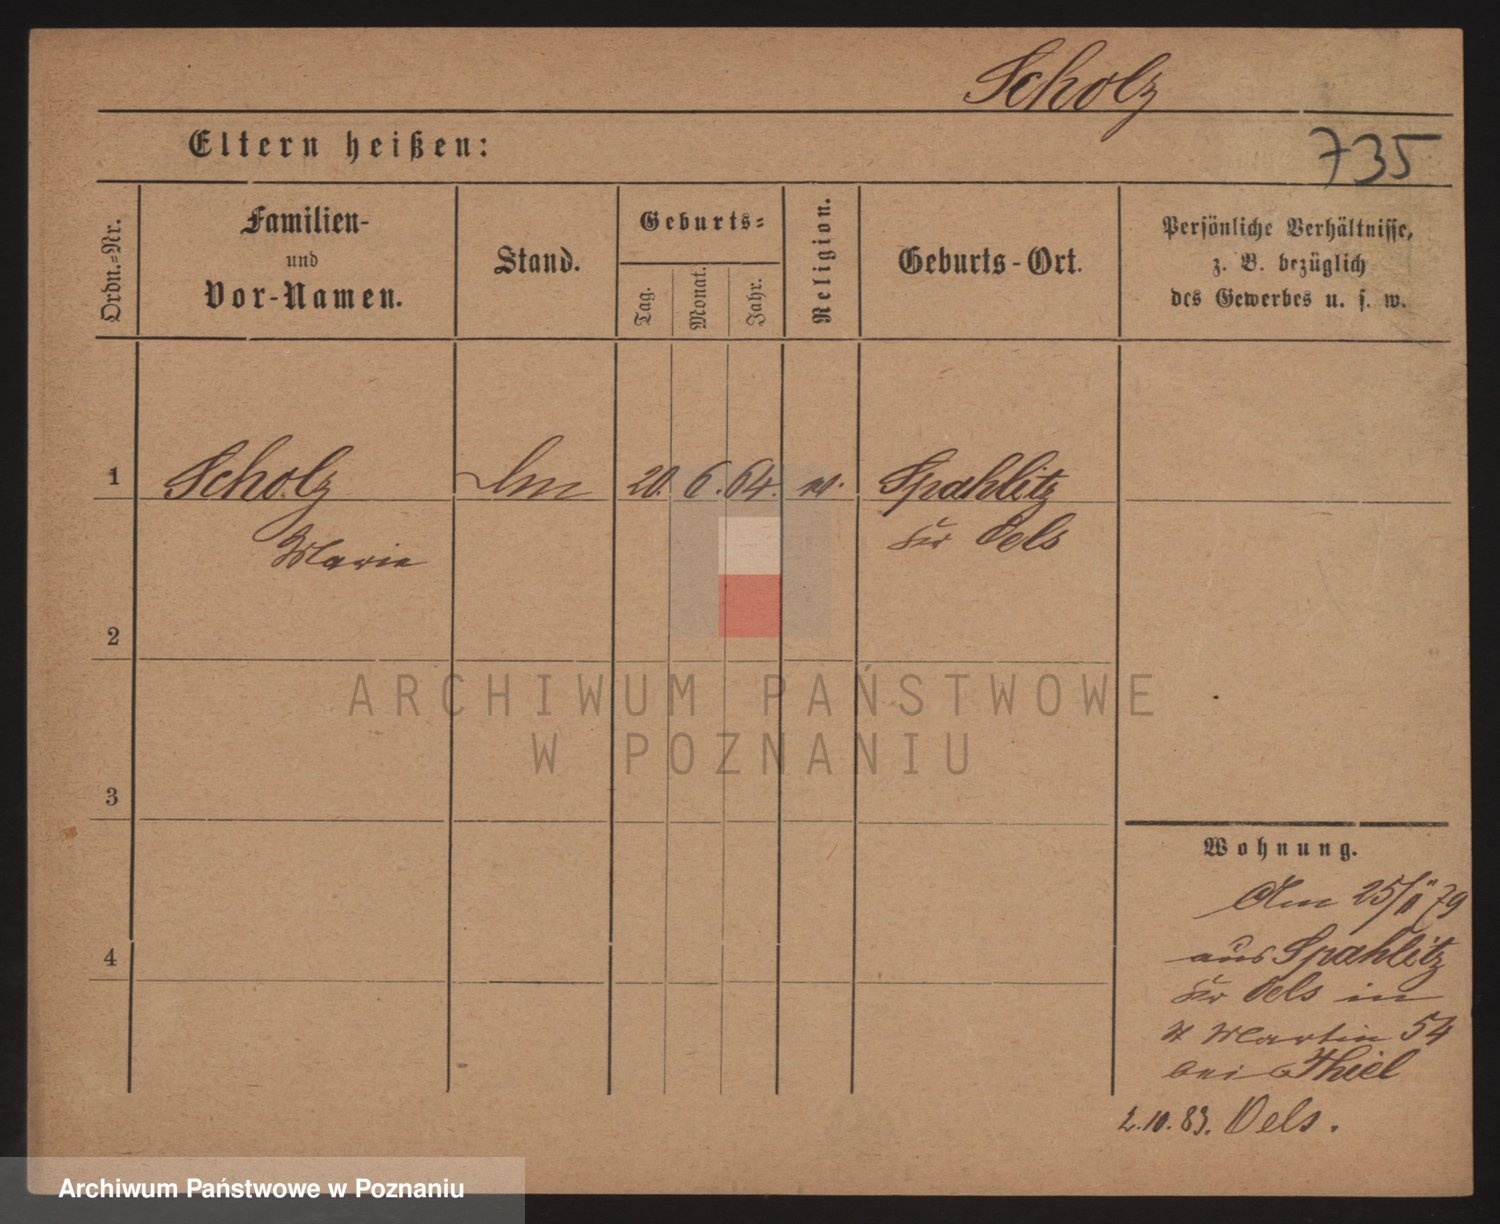 Scholz
Eltern heißen:
735
Ordn.=Nr.
Familien-
und
Vor-Namen.
Stand.
Geburts=
Tag.
Monat.
Jahr.
Religion.
Geburts-Ort.
Persönliche Verhältnisse,
z. B. bezüglich
des Gewerbes u. s. w.
1
Scholz
20. 6. 64.
Spahlitz
Marie
Kr Oels
2
ARCHIWUM PAŃSTWOWE
W POZNANIU
3
Wohnung.
4
Am 25/11 79
aus Spahlitz
Kr Oels in
Martin 54
bei Thiel
2.10.83. Oels.
Archiwum Państwowe w Poznaniu